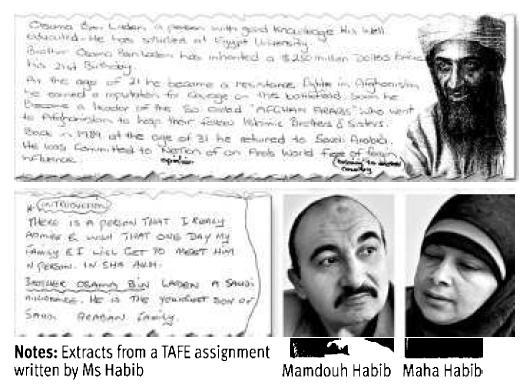 Osama Ben Laden, a person with good knowledge his well
educated. He has studied at Egypt University.
Brother Osama Ben Laden has inherited a $250 million Dollars
his 21st Birthday.
At the age of 21 he became a resistance fighter in Afghanistan
he earned a reputation for courage on the battlefield. Soon he
Become a leader of the So Called "AFGHAN ARABS" who went
to Afghanistan to help their fellow Islamic Brothers & Sisters.
Back in 1989 at the age of 31 he returned to Saudi Arabia.
He was committed to Notion of an Arab World free of foreign
influence. opinion country
* INTRODUCTION
THERE IS A PERSON THAT I REALLY
ADMIRE & WISH THAT ONE DAY MY
FAMILY & I WILL GET TO MEET HIM
IN PERSON. IN SHA ALLH.
BROTHER OSAMA BIN LADEN A SAUDI
MILLIONAIRE. HE IS THE YOUNGEST SON OF
SAUDI ARABIAN FAMILY.
Notes: Extracts from a TAFE assignment
written by Ms Habib
Mamdouh Habib
Maha Habib